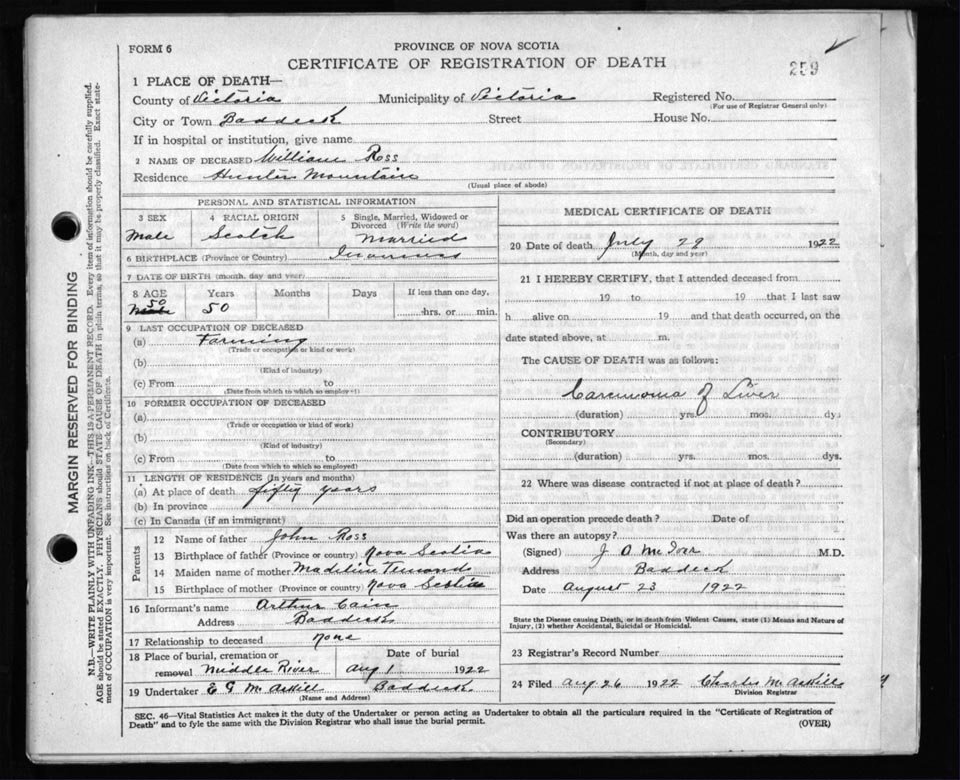 FORM 6
PROVINCE OF NOVA SCOTIA
CERTIFICATE OF REGISTRATION OF DEATH
259
1 PLACE OF DEATH—
County of Victoria Municipality of Victoria Registered No.
(For use of Registrar General only)
City or Town Baddeck Street House No.
If in hospital or institution, give name
2 NAME OF DECEASED William Ross
Residence Hunter Mountain
(Usual place of abode)
PERSONAL AND STATISTICAL INFORMATION
3 SEX 4 RACIAL ORIGIN 5 Single, Married, Widowed or Divorced (Write the word)
Male Scotch Married
6 BIRTHPLACE (Province or Country)
7 DATE OF BIRTH (month, day and year)
8 AGE Years Months Days If less than one day,
50 50 hrs. or min.
9 LAST OCCUPATION OF DECEASED
(a) Farming
(Trade or occupation or kind of work)
(b)
(Kind of industry)
(c) From to
(Date from which to which so employed)
10 FORMER OCCUPATION OF DECEASED
(a)
(Trade or occupation or kind of work)
(b)
(Kind of industry)
(c) From to
(Date from which to which so employed)
11 LENGTH OF RESIDENCE (In years and months)
(a) At place of death fifty years
(b) In province
(c) In Canada (if an immigrant)
Parents
12 Name of father John Ross
13 Birthplace of father (Province or country) Nova Scotia
14 Maiden name of mother
15 Birthplace of mother (Province or country) Nova Scotia
16 Informant's name Arthur Cain
Address Baddeck
17 Relationship to deceased None
18 Place of burial, cremation or removal Date of burial
Middle River Aug 1 1922
19 Undertaker E G McAskill Baddeck
(Name and Address)
MEDICAL CERTIFICATE OF DEATH
20 Date of death July 29 1922
(Month, day and year)
21 I HEREBY CERTIFY, that I attended deceased from
19 to 19 that I last saw
h alive on 19 and that death occurred, on the
date stated above, at m.
The CAUSE OF DEATH was as follows:
Carcinoma of Liver
(duration) yrs. mos. dys
CONTRIBUTORY
(Secondary)
(duration) yrs. mos. dys.
22 Where was disease contracted if not at place of death?
Did an operation precede death? Date of
Was there an autopsy?
(Signed) J O M M.D.
Address Baddeck
Date August 23 1922
State the Disease causing Death, or in death from Violent Causes, state (1) Means and Nature of
Injury, (2) whether Accidental, Suicidal or Homicidal.
23 Registrar's Record Number
24 Filed Aug 26 1922 Charles McAskill
Division Registrar
SEC. 46—Vital Statistics Act makes it the duty of the Undertaker or person acting as Undertaker to obtain all the particulars required in the "Certificate of Registration of
Death" and to fyle the same with the Division Registrar who shall issue the burial permit.
(OVER)
MARGIN RESERVED FOR BINDING
N.B.—WRITE PLAINLY WITH UNFADING INK—THIS IS A PERMANENT RECORD. Every item of information should be carefully supplied.
AGE should be stated EXACTLY. PHYSICIANS should STATE CAUSE OF DEATH in plain terms, so that it may be properly classified. Exact state-
ment of OCCUPATION is very important. See instructions on back of Certificate.